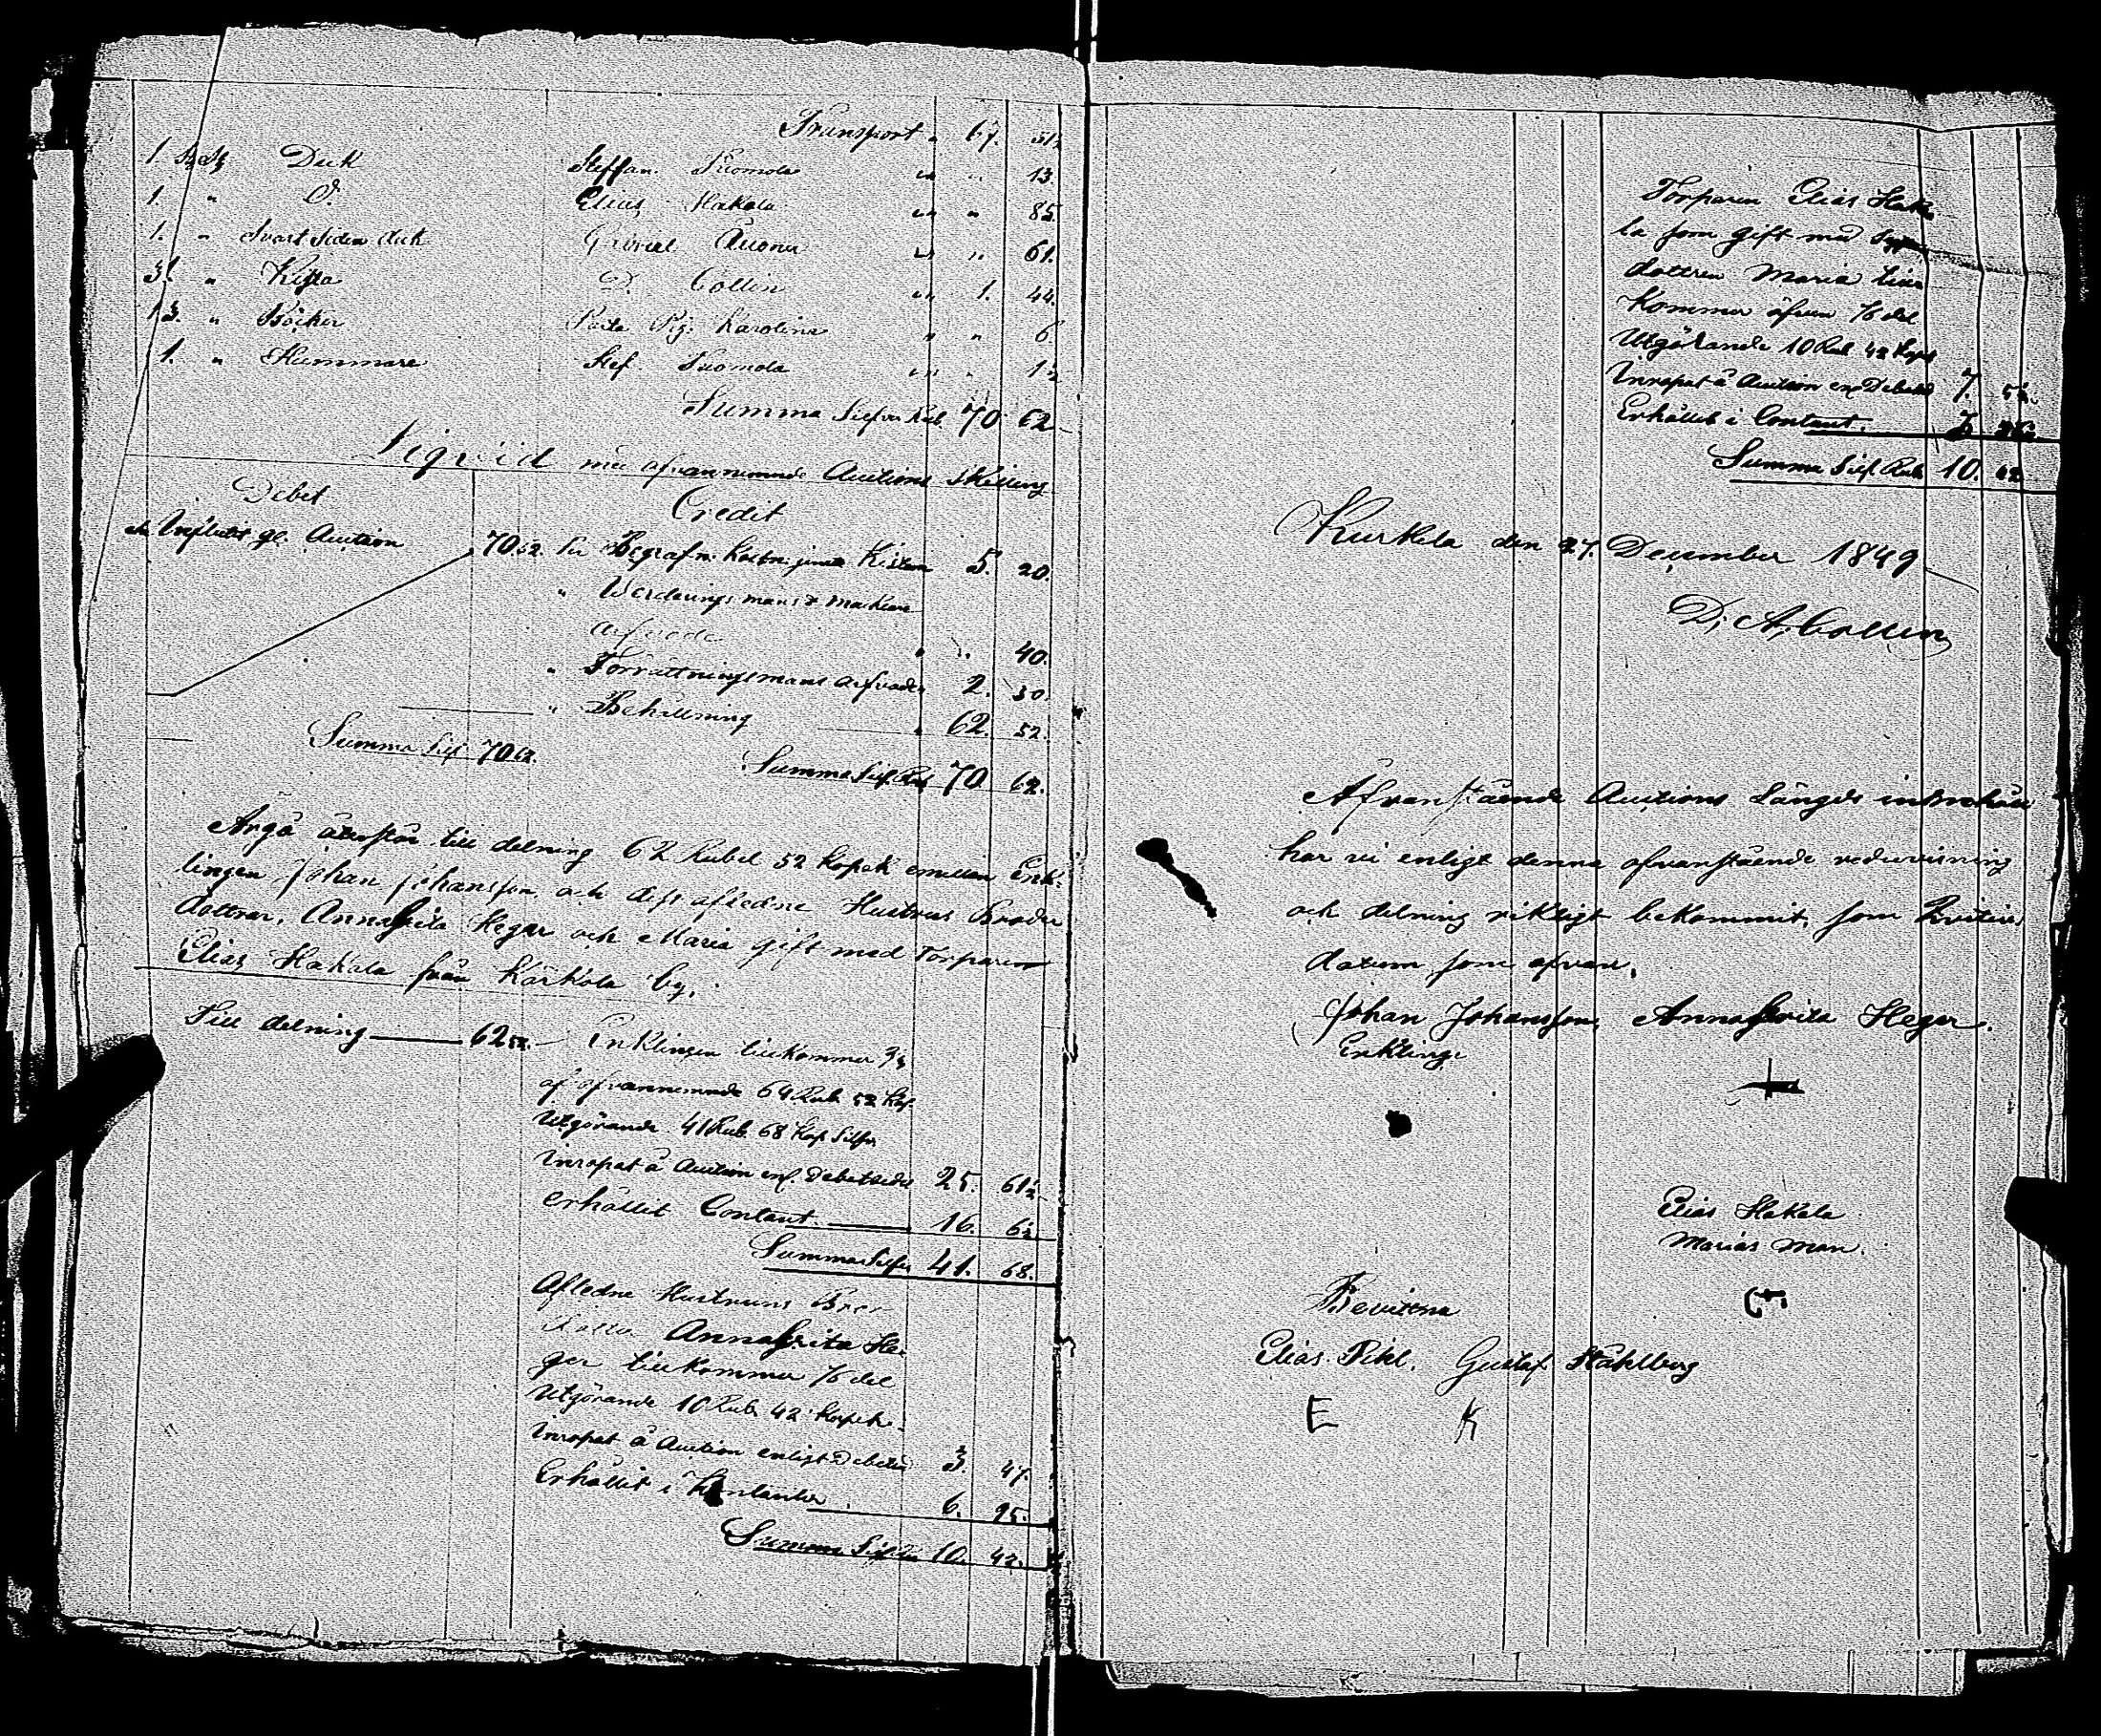 Transport " 67. 51½
1. St Duk Steffan Suomola " " 13.
1. " D. Elias Hakala " " 85.
1. " Svart Siden duk Gabriel " " 61.
31. " Kista D. Collin " 1. 44.
13. " Böcker Pig. Karolina " " 6.
1. " Hummare Stef. Suomola " " 1½
Summa Silfver Rub 70 62
Liqvid med ofvannemnde Auctions Skilling
Debet Credit
Influtit gl. Auction 70 62. Begrafn. Kostn: jemte Kistan 5. 20.
" Värderingsmans &
Arfvode " ". 40.
" Förrättningsmans Arfvode 2. 50.
" Behållning 62. 52.
Summa Silf 70 62. Summa Silf. Rub 70 62.
återstår till delning 62 Rubel 52 Kopek emellan Enk-
lingen Johan Johansson och dess aflednе Hustrus Broder
döttrar, Anna Brita Heger och Maria gift med Torparen
Elias Hakala från Kärkölä by.
Till delning 62 52. Enklingen tillkommer ⅔
af ofvannemnde 62 Rub 52 Kop.
Utgörande 41 Rub 68 Kop Silfv
Inropat å Auction enl. Debetsedel 25. 61½
erhållit Contant 16. 6½
Summa Silfv 41. 68.
Afledne Hustruns Bro-
dotter Anna Brita He-
ger tillkommer ⅙ del
Utgörande 10 Rub 42 Kopek.
Inropat å Auction enligt Debetsed 3. 47.
Erhållit i Kontanter 6. 95.
Summa Silf Rub 10. 42.
Torparen Elias Haka
la som gift med
dottren Maria till
Kommer äfven ⅙ del
Utgörande 10 Rub 42 Kopek
Inropat å Auction enl Debetsd 7.
Erhållit i Contant.
Summa Silf. Rub 10. 42
Kurkela den 27. December 1849
D. A. Collin
Afvanstående Auctions Längds
har vi enligt denna ofvanstående redovisning
och delning riktigt bekommit, som Kvitteras
datum som ofvan.
Johan Johansson, Anna Brita Heger.
Enkling.
Elias Hakala
Marias Man.
Bevittna
Elias Pihl. Gustaf Ståhlberg
E K